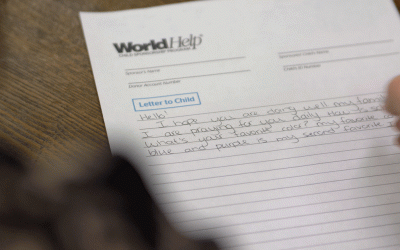 World Help
CHILD SPONSORSHIP PROGRAM
Sponsor's Name
Sponsored Child's Name
Donor Account Number
Child's ID Number
Letter to Child
Hello!
I hope you are doing well my family
I are praying for you daily How
What's your favorite color? my favorite
blue and purple is my second favorite